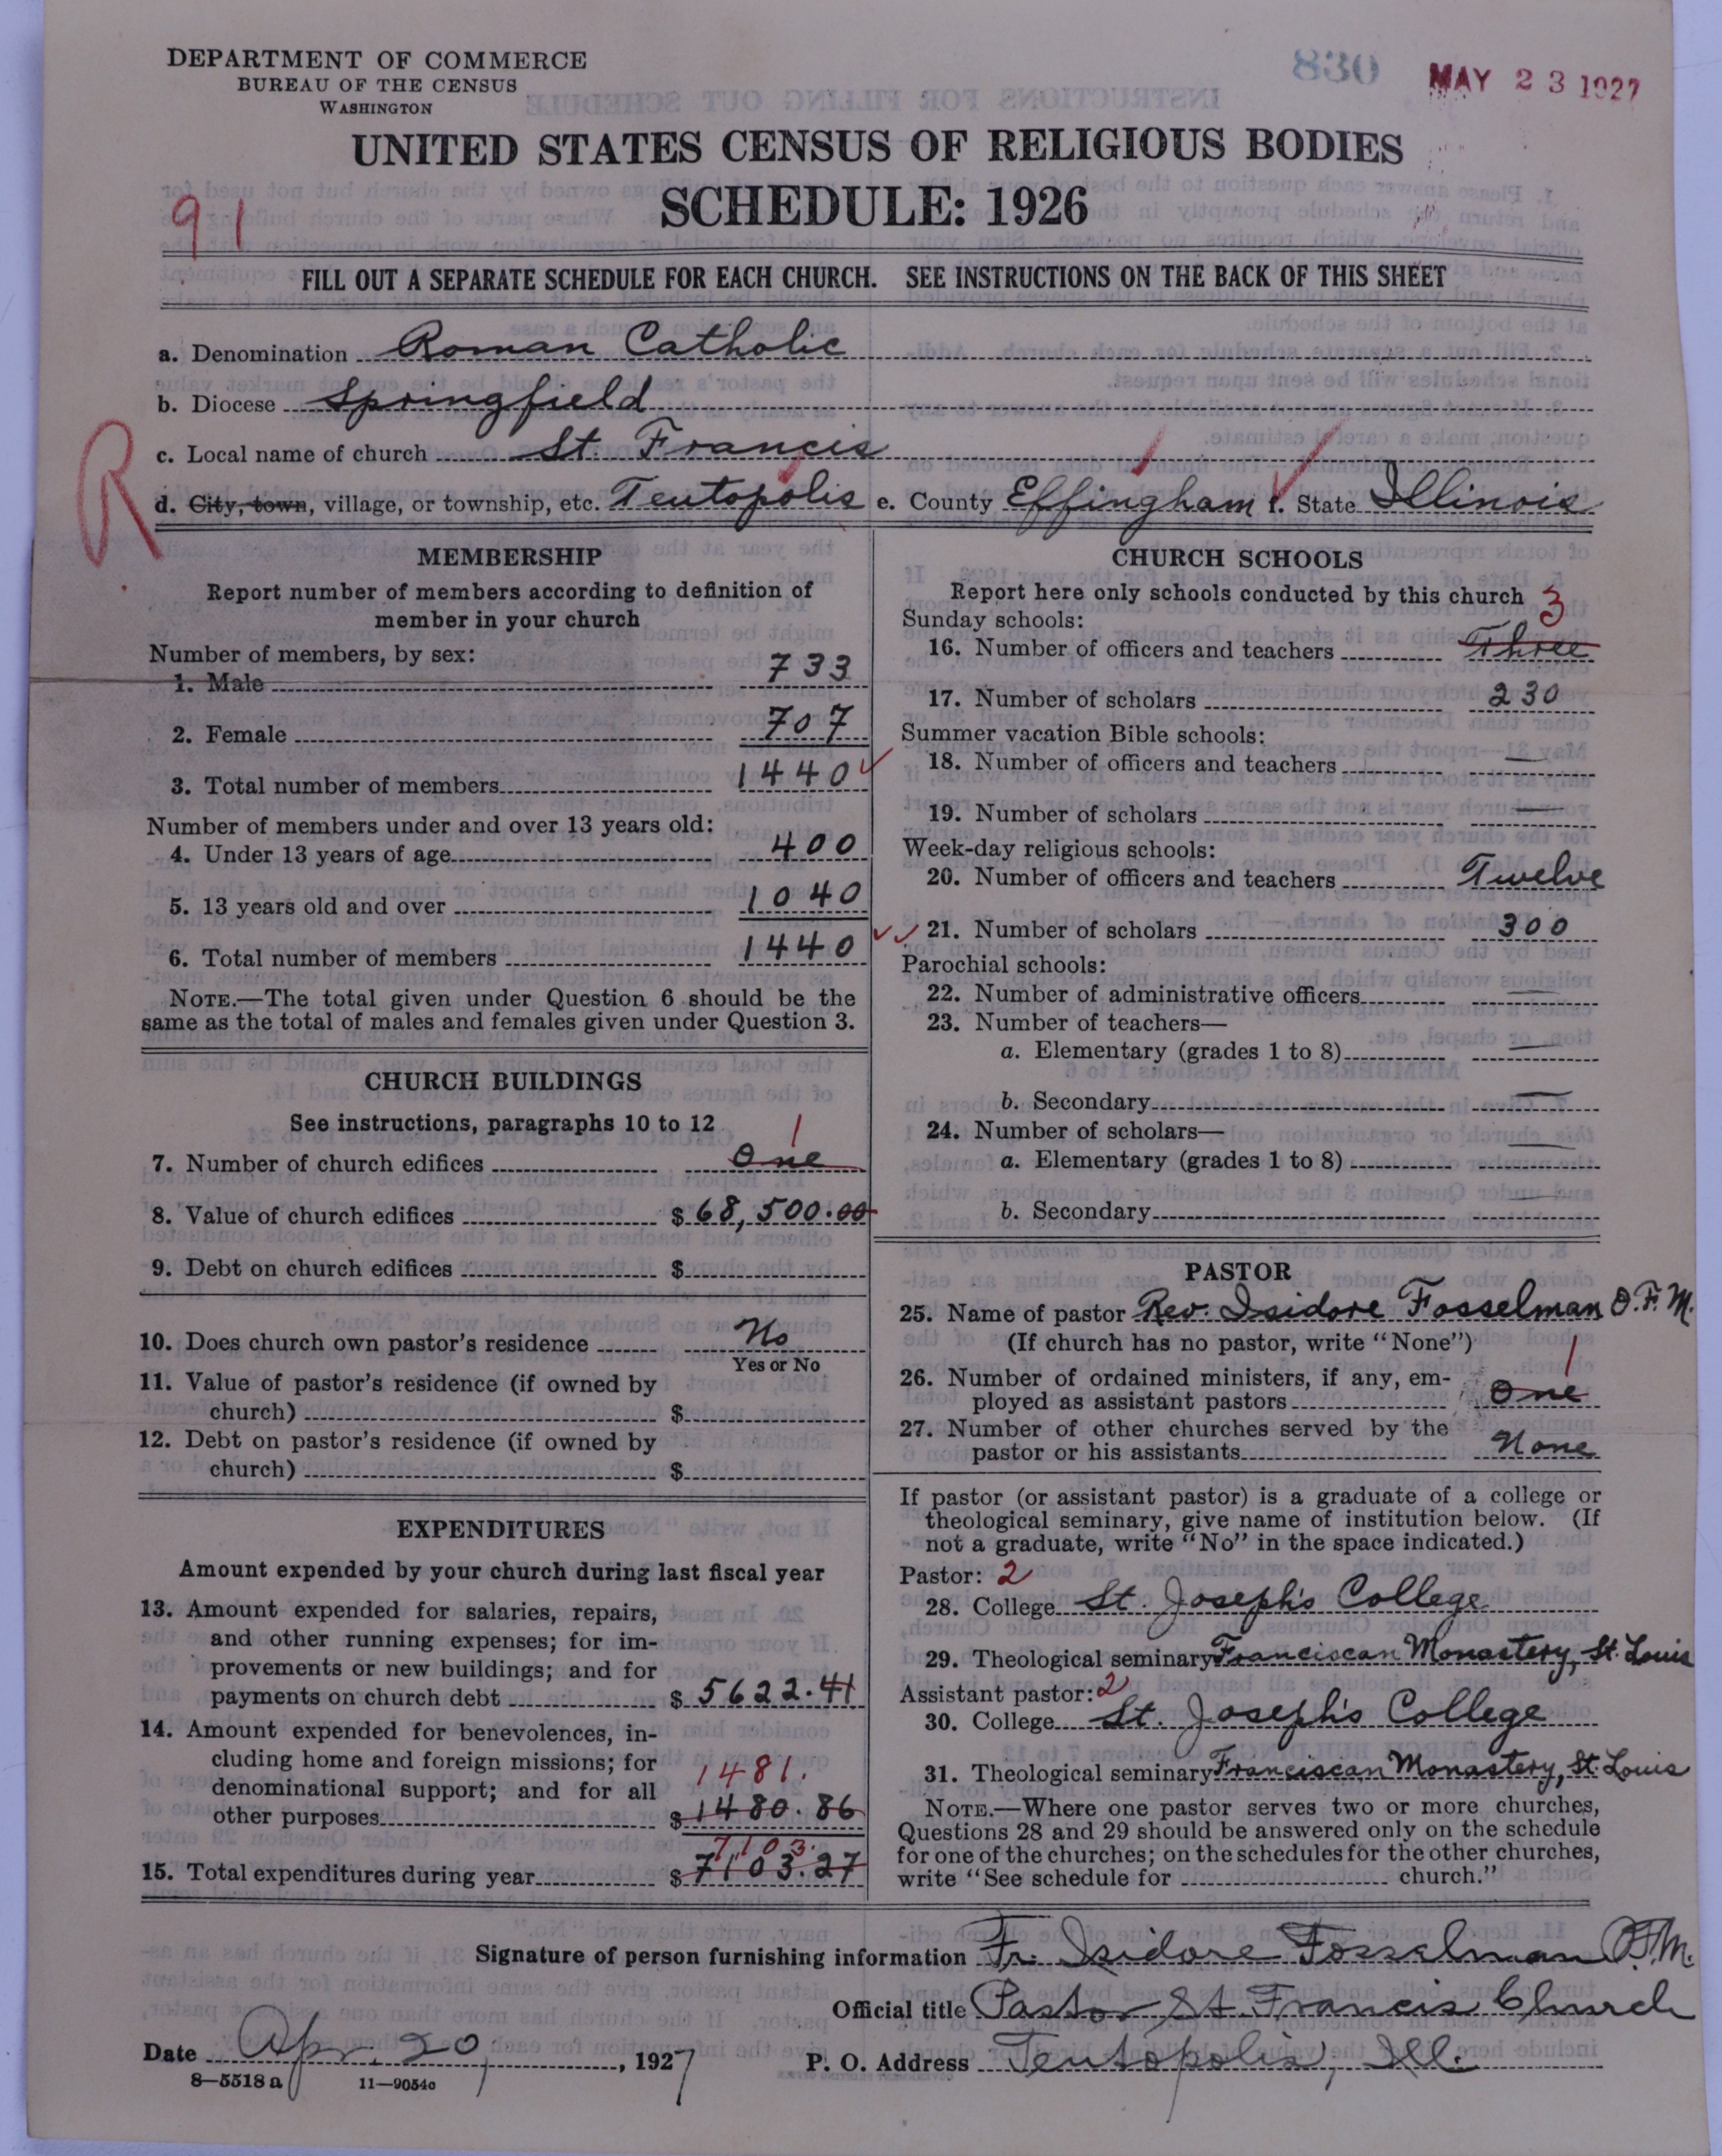 DEPARTMENT OF COMMERCE
BUREAU OF THE CENSUS
WASHINGTON
830
MAY 23 1927
UNITED STATES CENSUS OF RELIGIOUS BODIES
SCHEDULE: 1926
91
FILL OUT A SEPARATE SCHEDULE FOR EACH CHURCH. SEE INSTRUCTIONS ON THE BACK OF THIS SHEET
a. Denomination Roman Catholic
b. Diocese Springfield
c. Local name of church St. Francis
R
d. City, town, village, or township, etc. Teutopolis e. County Effingham f. State Illinois
MEMBERSHIP
Report number of members according to definition of
member in your church
Number of members, by sex:
1. Male 733
2. Female 707
3. Total number of members 1440
Number of members under and over 13 years old:
4. Under 13 years of age 400
5. 13 years old and over 1040
6. Total number of members 1440
NOTE.—The total given under Question 6 should be the
same as the total of males and females given under Question 3.
CHURCH BUILDINGS
See instructions, paragraphs 10 to 12
1
7. Number of church edifices One
8. Value of church edifices $ 68,500.00
9. Debt on church edifices $
10. Does church own pastor's residence No
Yes or No
11. Value of pastor's residence (if owned by
church) $
12. Debt on pastor's residence (if owned by
church) $
EXPENDITURES
Amount expended by your church during last fiscal year
13. Amount expended for salaries, repairs,
and other running expenses; for im-
provements or new buildings; and for
payments on church debt $ 5622.41
14. Amount expended for benevolences, in-
cluding home and foreign missions; for
denominational support; and for all 1481.
other purposes $ 1480.86
7103.
15. Total expenditures during year $ 7103.27
CHURCH SCHOOLS
Report here only schools conducted by this church
Sunday schools: 3
16. Number of officers and teachers Three
17. Number of scholars 230
Summer vacation Bible schools:
18. Number of officers and teachers —
19. Number of scholars —
Week-day religious schools:
20. Number of officers and teachers Twelve
21. Number of scholars 300
Parochial schools:
22. Number of administrative officers —
23. Number of teachers—
a. Elementary (grades 1 to 8) —
b. Secondary —
24. Number of scholars—
a. Elementary (grades 1 to 8) —
b. Secondary —
PASTOR
25. Name of pastor Rev. Isidore Fosselman O.F.M.
(If church has no pastor, write "None")
1
26. Number of ordained ministers, if any, em-
ployed as assistant pastors One
27. Number of other churches served by the
pastor or his assistants None
If pastor (or assistant pastor) is a graduate of a college or
theological seminary, give name of institution below. (If
not a graduate, write "No" in the space indicated.)
Pastor: 2
28. College St. Joseph's College
29. Theological seminary Franciscan Monastery, St. Louis
Assistant pastor: 2
30. College St. Joseph's College
31. Theological seminary Franciscan Monastery, St. Louis
NOTE.—Where one pastor serves two or more churches,
Questions 28 and 29 should be answered only on the schedule
for one of the churches; on the schedules for the other churches,
write "See schedule for church."
Signature of person furnishing information Fr. Isidore Fosselman O.F.M.
Official title Pastor St. Francis Church
Date Apr. 20, 1927 P. O. Address Teutopolis, Ill.
8—5518a 11—9054c